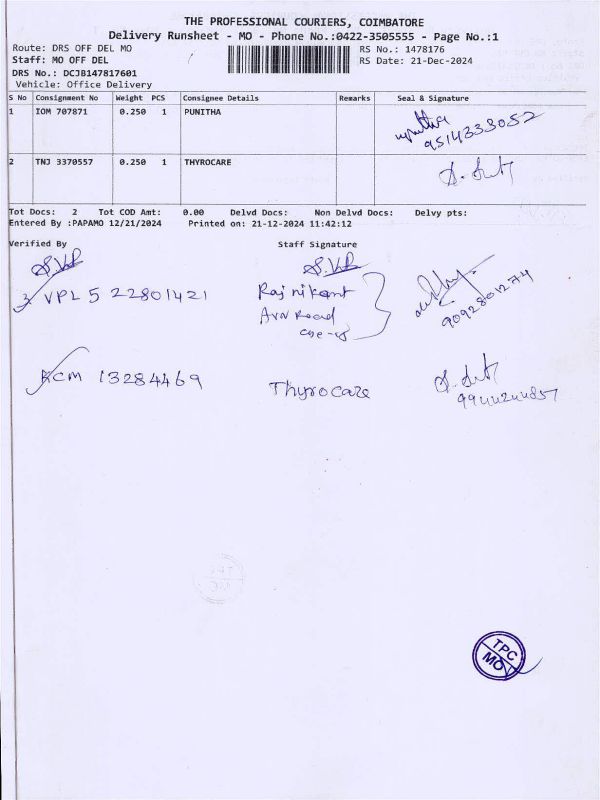 THE PROFESSIONAL COURIERS, COIMBATORE
Delivery Runsheet - MO - Phone No.:0422-3505555 - Page No.:1
Route: DRS OFF DEL MO
RS No.: 1478176
Staff: MO OFF DEL
RS Date: 21-Dec-2024
DRS No.: DCJB147817601
Vehicle: Office Delivery
S No Consignment No Weight PCS Consignee Details Remarks Seal & Signature
1 IOM 707871 0.250 1 PUNITHA
9514333052
2 TNJ 3370557 0.250 1 THYROCARE
Tot Docs: 2 Tot COD Amt: 0.00 Delvd Docs: Non Delvd Docs: Delvy pts:
Entered By :PAPAMO 12/21/2024 Printed on: 21-12-2024 11:42:12
Verified By Staff Signature
3 VPL 5 22801421 Rajnikant
9092801274
KCM 13284469 Thyrocare
9944244857
TPC
MO